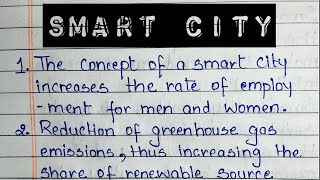 SMART CITY
1. The concept of a smart city
increases the rate of employ
-ment for men and women.
2. Reduction of greenhouse gas
emissions, thus increasing the
share of renewable source.